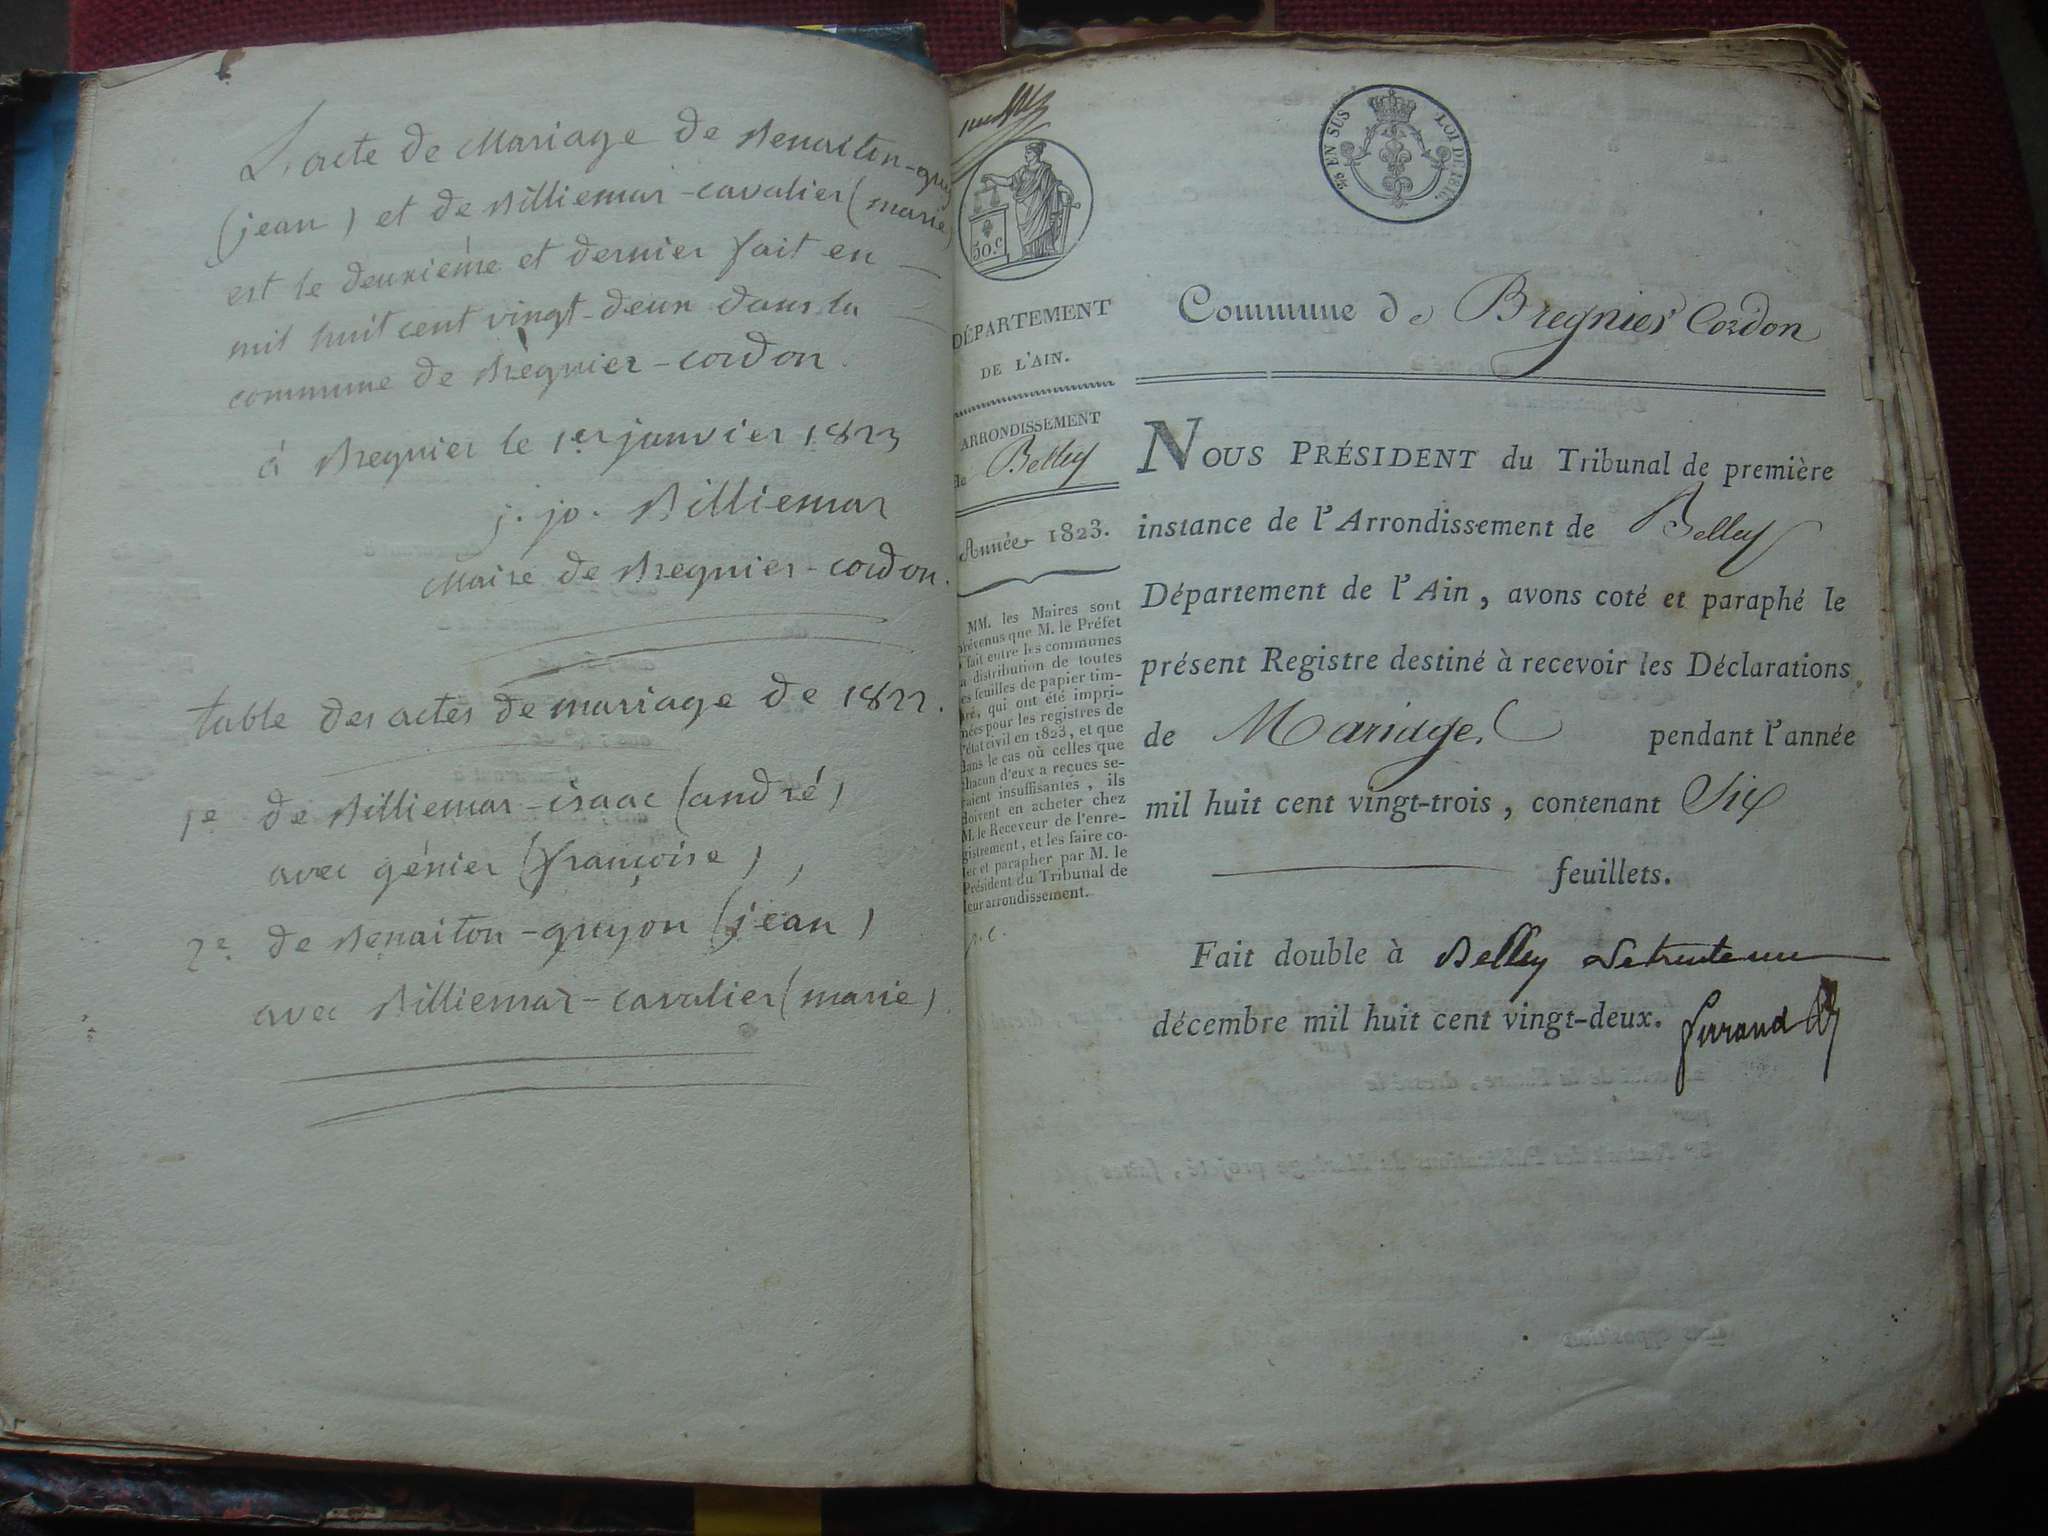 L'acte de Mariage de Benaiton-guy
(jean) et de Billiemar-cavalier (marie)
est le deuxième et dernier fait en
mil huit cent vingt-deux dans la
commune de Brègnier-cordon.
à Bregnier le 1er janvier 1823
j. jo. Billiemar
Maire de Bregnier-cordon.
table des actes de mariage de 1822.
1e de Billiemar-isaac (andré)
avec génier (françoise),
2e de Benaiton-guyon (jean)
avec Billiemar-cavalier (marie)
50.c
DÉPARTEMENT
DE L'AIN.
ARRONDISSEMENT
de Belley
Année 1823.
MM. les Maires sont
prévenus que M. le Préfet
a fait entre les communes
la distribution de toutes
les feuilles de papier tim-
bré, qui ont été impri-
mées pour les registres de
l'état civil en 1823, et que
dans le cas où celles que
chacun d'eux a reçues se-
raient insuffisantes, ils
doivent en acheter chez
M. le Receveur de l'enre-
gistrement, et les faire co-
ter et parapher par M. le
Président du Tribunal de
leur arrondissement.
EN SUS LOI DE 1816
Commune de Bregnier Cordon
NOUS PRÉSIDENT du Tribunal de première
instance de l'Arrondissement de Belley
Département de l'Ain, avons coté et paraphé le
présent Registre destiné à recevoir les Déclarations
de Mariage, pendant l'année
mil huit cent vingt-trois, contenant Six
feuillets.
Fait double à Belley Le trente un
décembre mil huit cent vingt-deux.